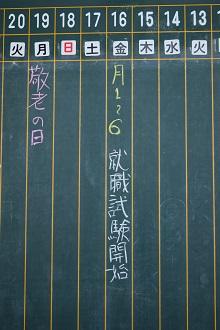 20 19 18 17 16 15 14 13
火 月 日 土 金 木 水 火
月1~6 就職試験開始
敬老の日